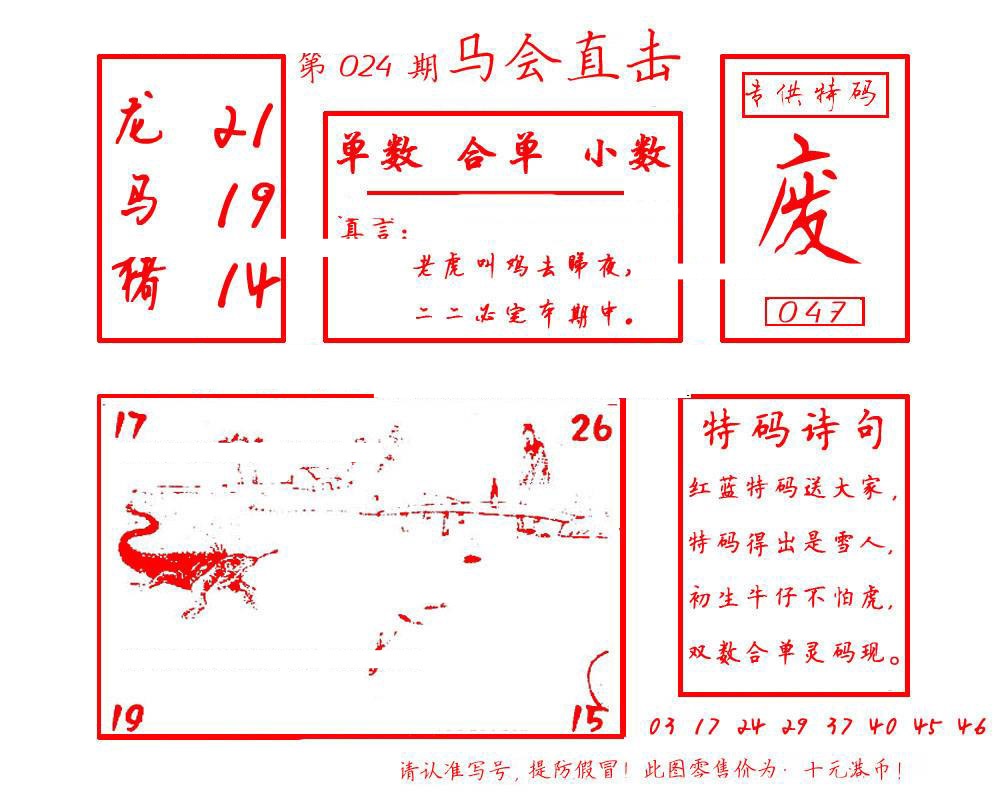 第 024 期 马会直击
龙 21
马 19
猪 14
单数 合单 小数
真言：
老虎叫鸡去睇夜，
二二必定本期中。
专供特码
废
047
17
26
19
15
特码诗句
红蓝特码送大家，
特码得出是雪人，
初生牛仔不怕虎，
双数合单灵码现。
03 17 24 29 37 40 45 46
请认准写号，提防假冒！此图零售价为·十元港币！